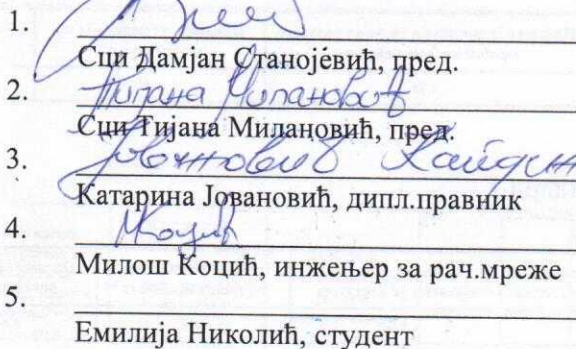 1.
Сци Дамјан Станојевић, пред.
2. Тијана Милановић
Сци Тијана Милановић, пред.
3. Јовановић
Катарина Јовановић, дипл.правник
4. МКоцић
Милош Коцић, инжењер за рач.мреже
5.
Емилија Николић, студент